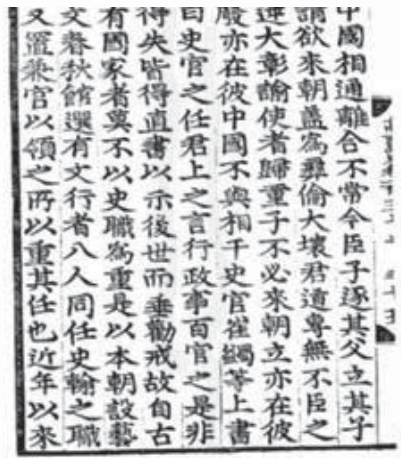 中國相通離合不常今臣子逐其父立其子
請欲來朝盖爲彛倫大壞君道專無不臣之
迹大彰諭使者歸童子不必來朝立亦在彼
廢亦在彼中國不與相干史官崔蠲等上書
曰史官之任君上之言行政事百官之是非
得失皆得直書以示後世而垂勸戒故自古
有國家者莫不以史職爲重是以本朝設藝
文春秋館選有文行者八人同任史翰之職
又置兼官以領之所以重其任也近年以來